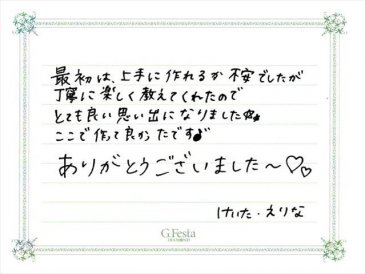 最初は、上手に作れるか不安でしたが
丁寧に楽しく教えてくれたので
とても良い思い出になりました☆
ここで作って良かったです♪
ありがとうございました～♡♡
けいた・えりな
G.Festa